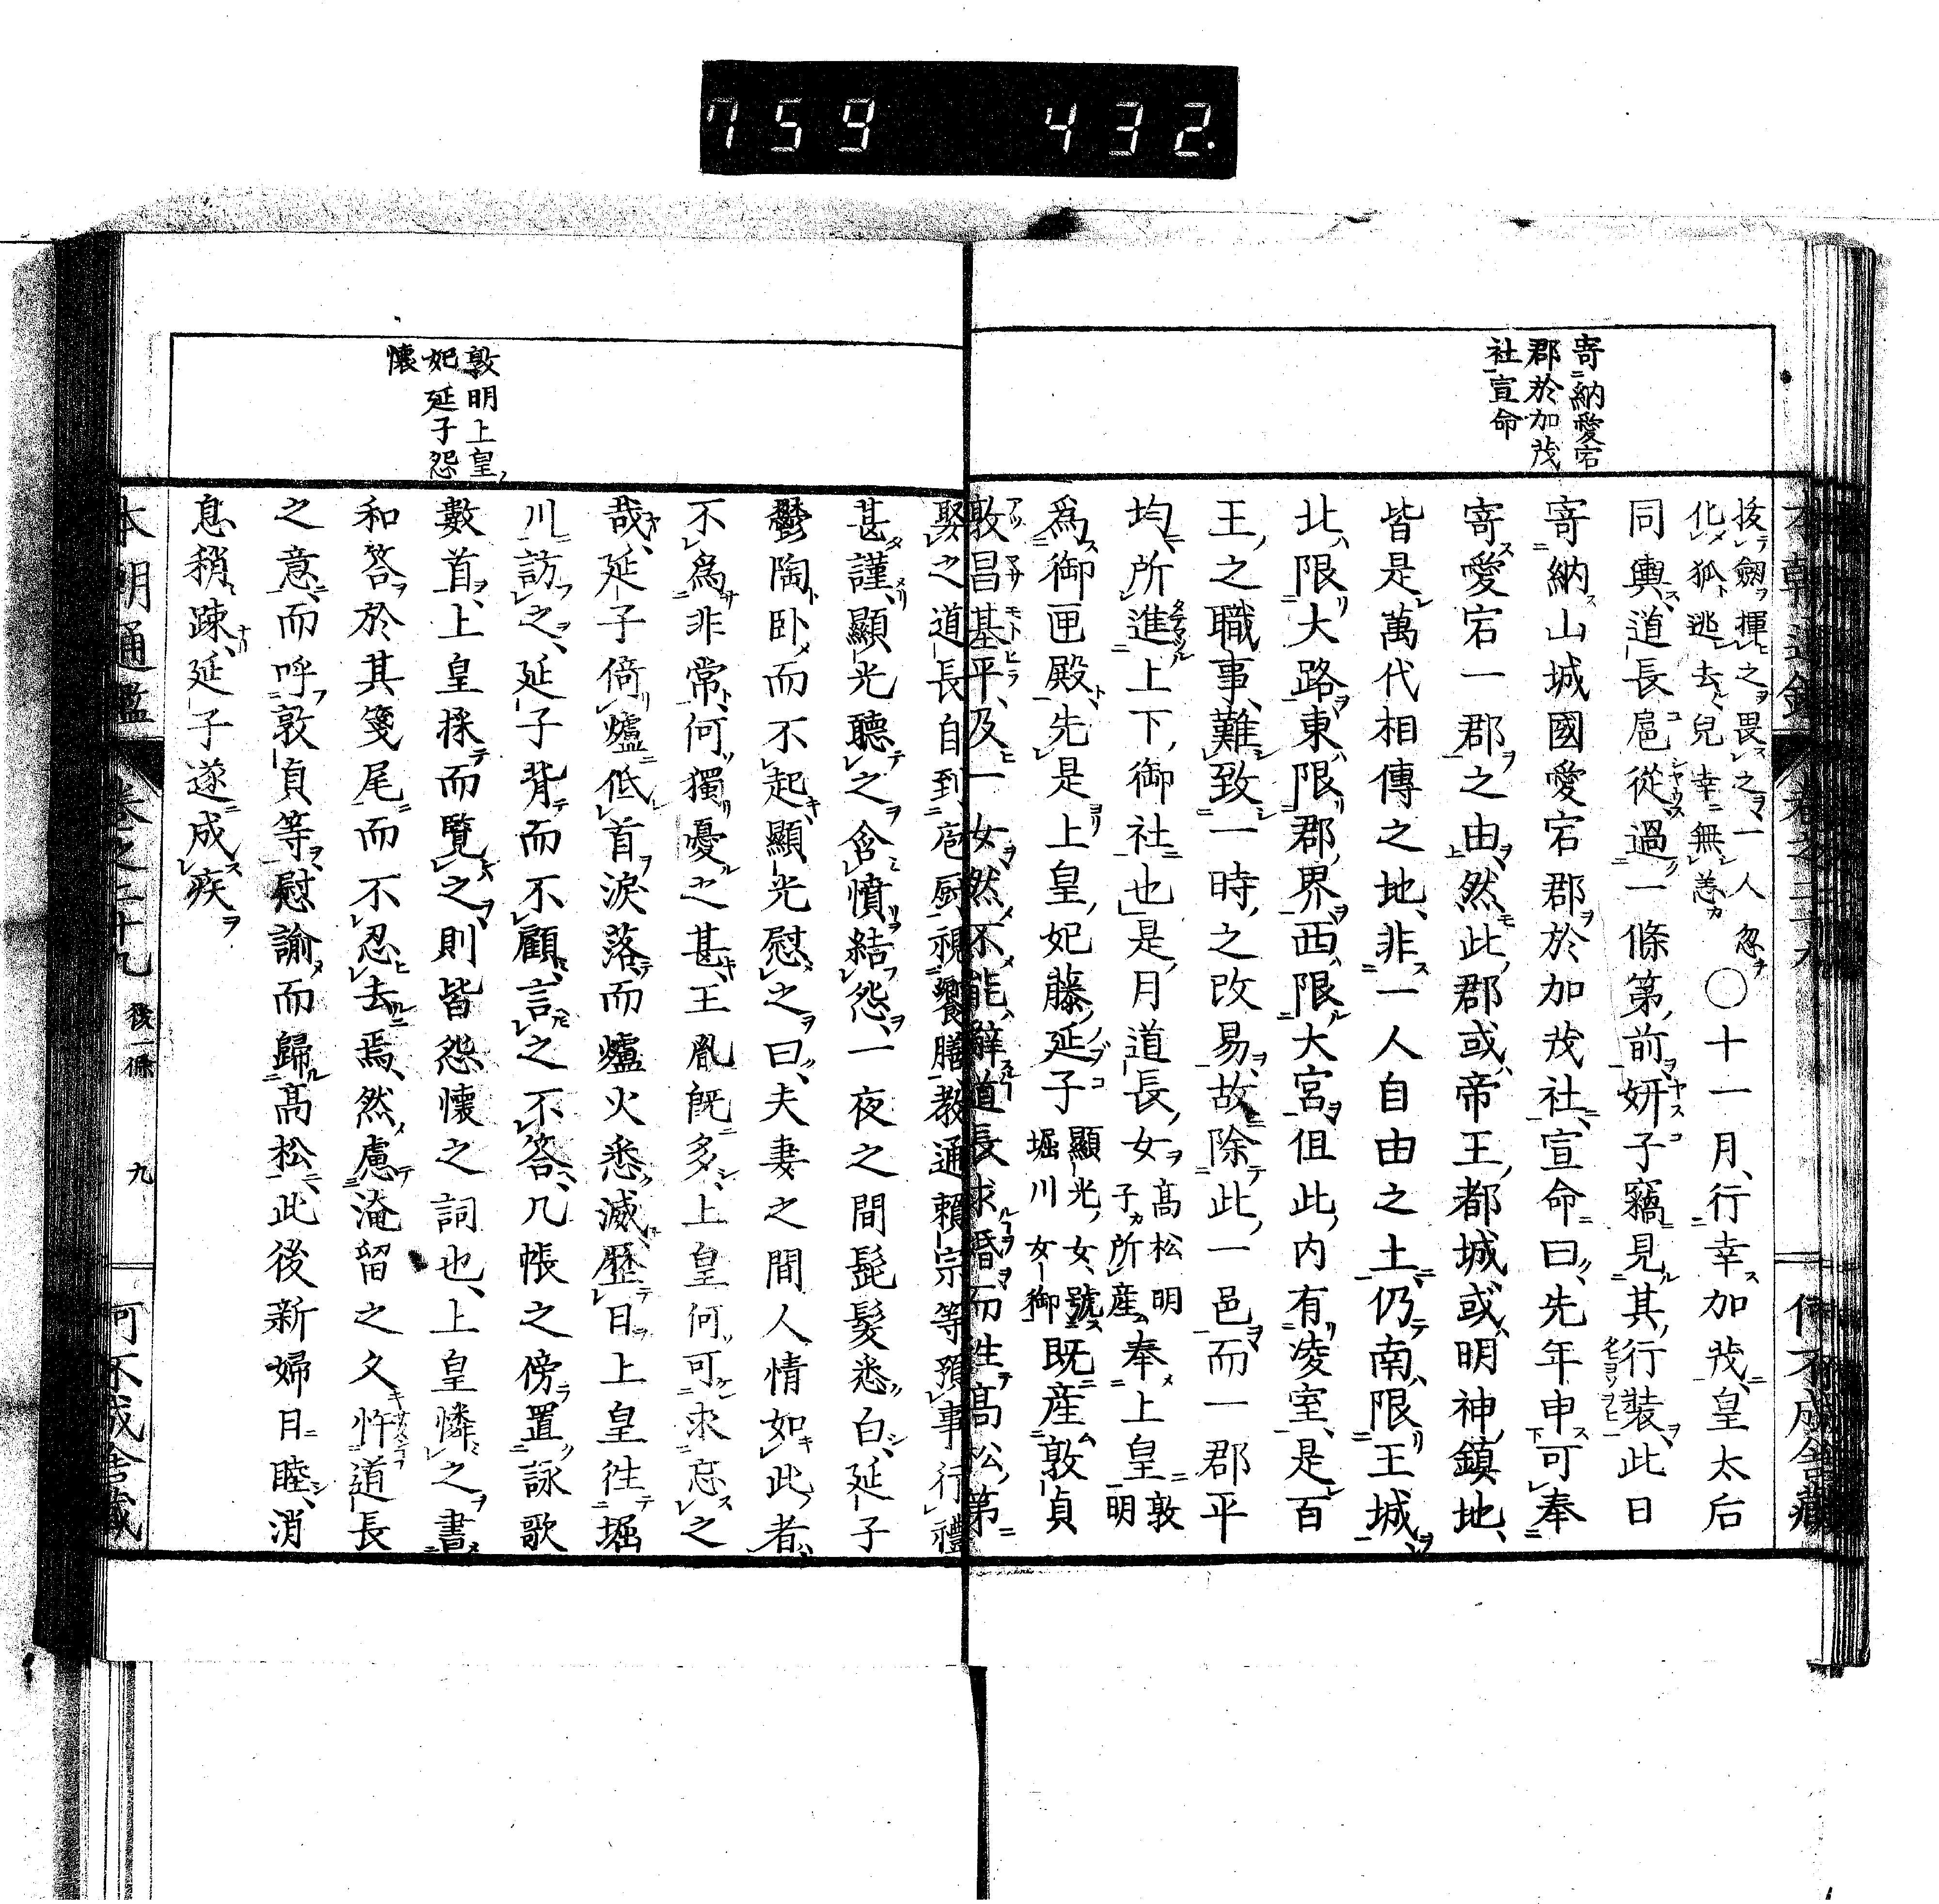 759 432.
寄納愛宕
郡於加茂
社宣命
拔劔揮之畏之一人忽
化狐逃去兒幸無恙
〇十一月、行幸加茂、皇太后
同輿、道長扈從過一條第前、妍子竊見其行裝、此日
寄納山城國愛宕郡於加茂社、宣命曰、先年申可奉
寄愛宕一郡之由、然此郡或帝王都城、或明神鎭地、
皆是萬代相傳之地、非一人自由之土、仍南限王城、
北限大路、東限郡界、西限大宮、但此内有凌室、是百
王之職事、難致一時之改易、故除此一邑而一郡平
均、所進上下御社也、是月道長女高松明子所産奉上皇敦明
爲御匣殿、先是上皇妃藤延子顯光女、號堀川女御既産敦貞
敦昌基平、及一女、然不能辭道長求婚而往高松第
娶之、道長自到庖厨視饗膳、教通賴宗等預事行禮
甚謹、顯光聽之含憤結怨、一夜之間髭髮悉白、延子
鬱陶卧而不起、顯光慰之曰、夫妻之間人情如此者、
不爲非常、何獨憂之甚、王胤既多、上皇何可求忘之
哉、延子倚爐低首涙落而爐火悉滅、歴日上皇往堀
川訪之、延子背而不顧、言之不答、几帳之傍置詠歌
數首、上皇採而覽之、則皆怨懷之詞也、上皇憐之書
和答於其箋尾而不忍去焉、然慮淹留之久忤道長
之意、而呼敦貞等慰諭而歸高松、此後新婦日睦、消
息稍踈、延子遂成疾
敦明上皇
妃延子怨
懷
本朝通鑑 卷之二十九 後一條 九